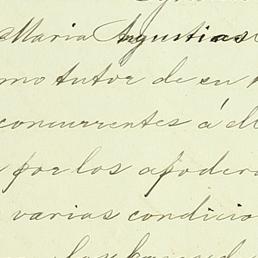 Maria Angustias
mo tutor de su
concurrentes á d
por los apodera
varias condicio